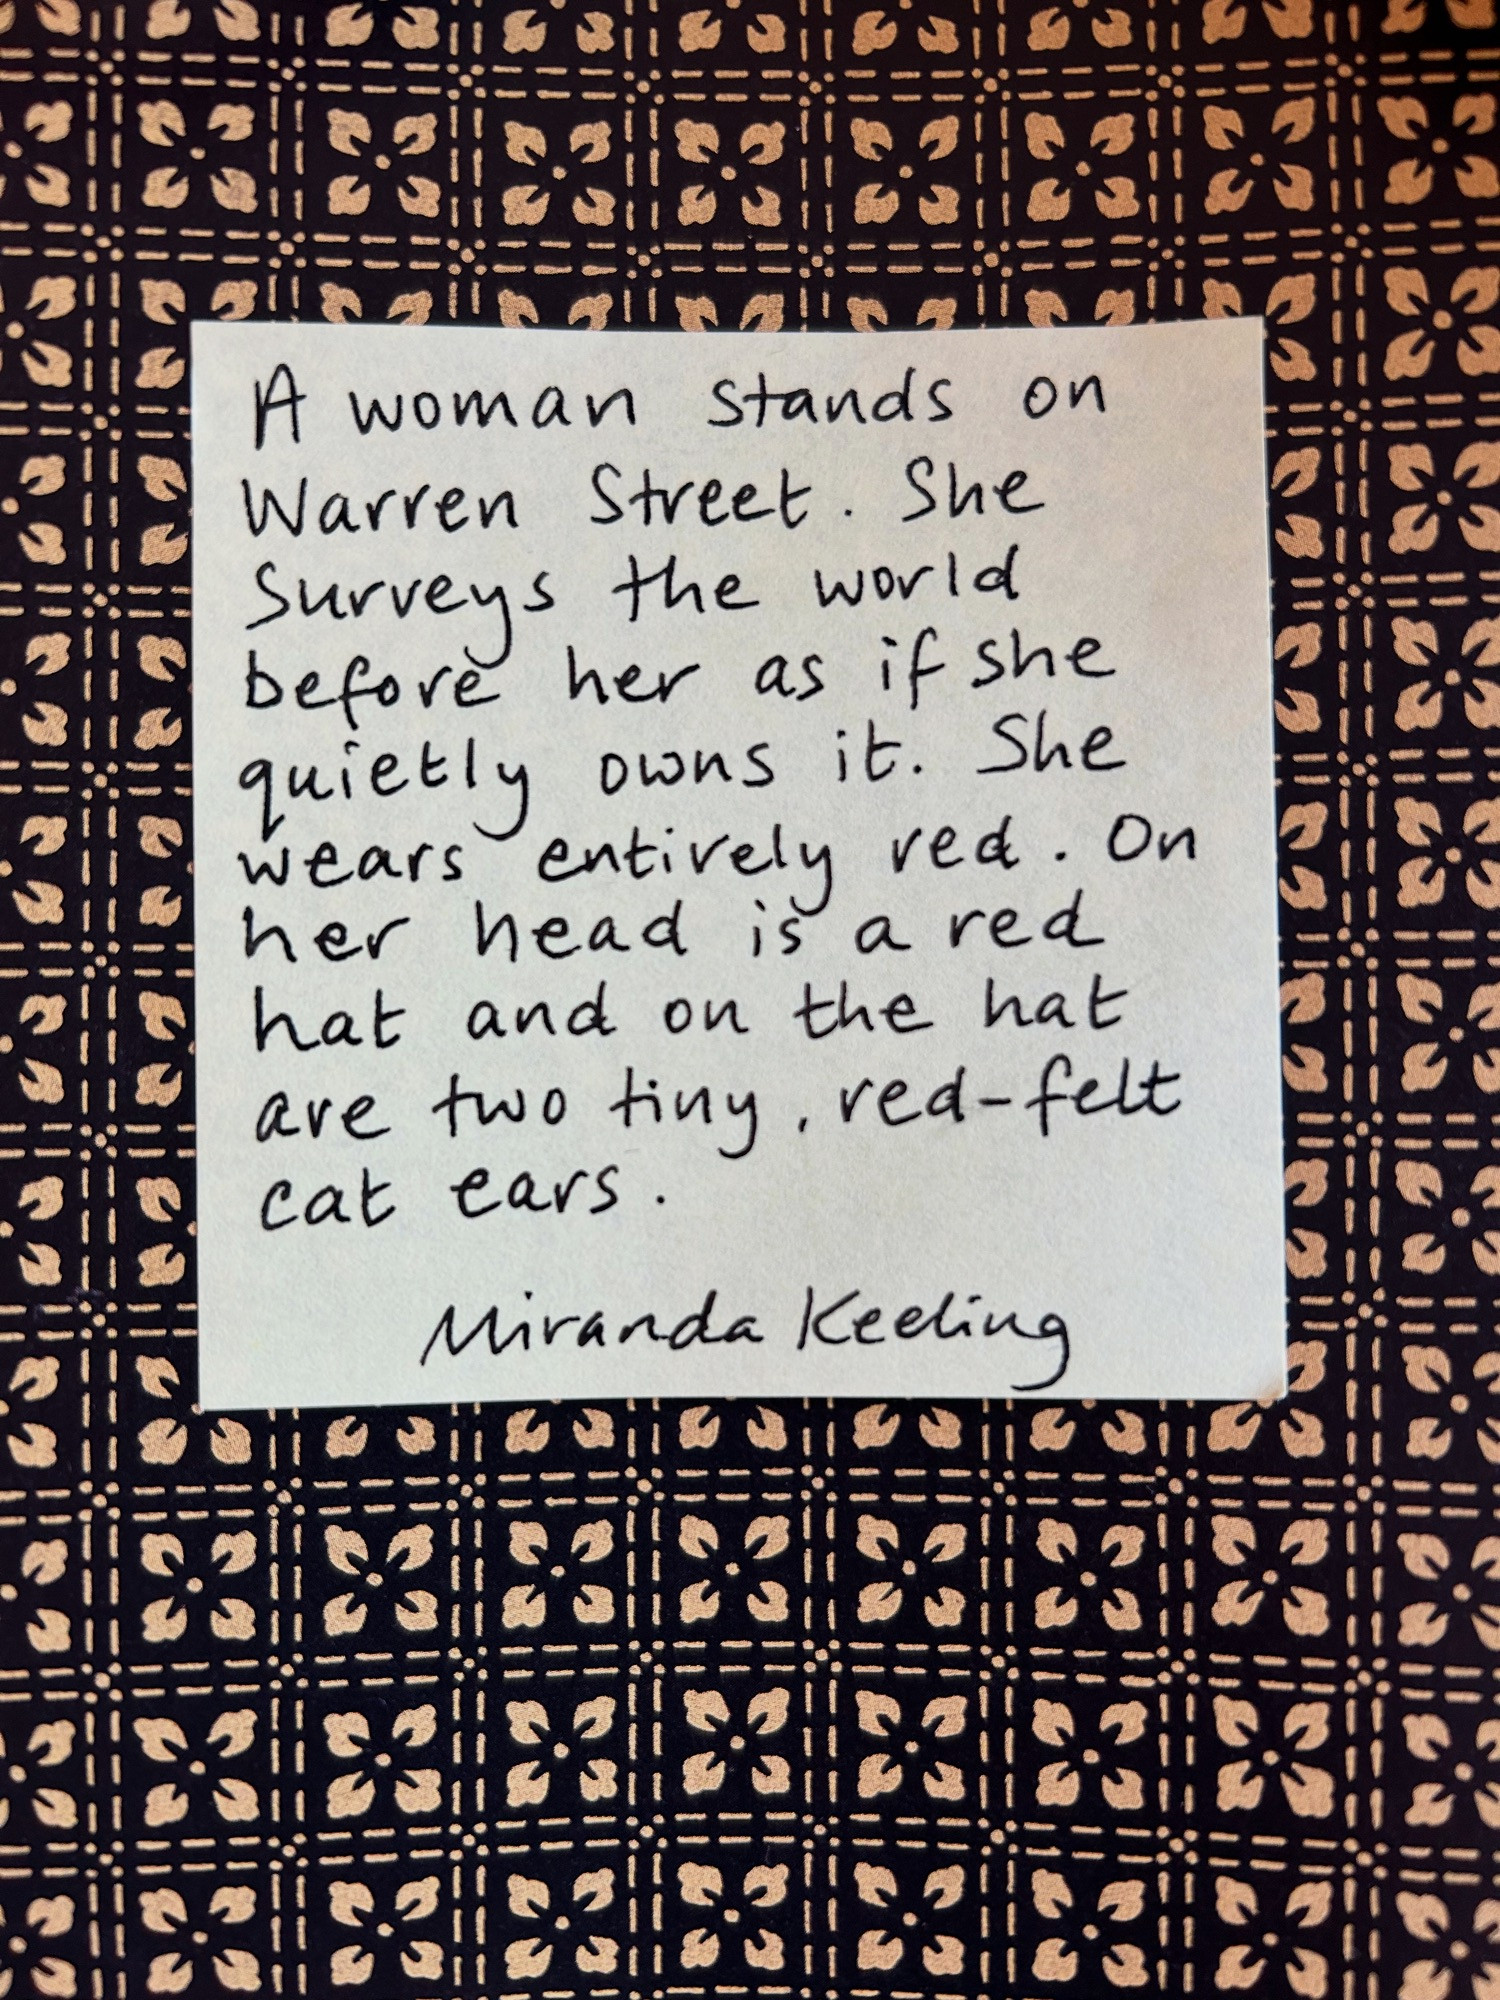 A woman stands on
Warren Street. She
surveys the world
before her as if she
quietly owns it. She
wears entirely red. On
her head is a red
hat and on the hat
are two tiny, red-felt
cat ears.
Miranda Keeling